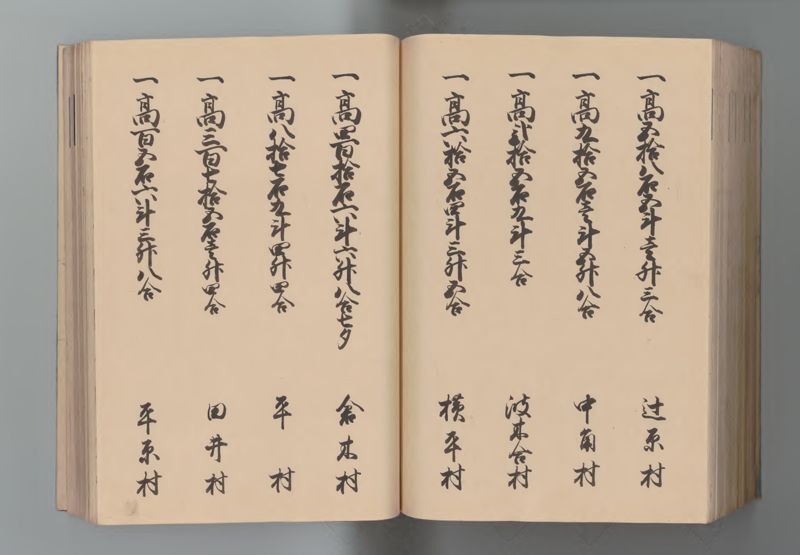 一高五拾八石五斗壱升三合 辻原村
一高九拾五石壱斗五升八合 中角村
一高弐拾五石九斗三合 波木合村
一高六拾五石四斗三升五合 横平村
一高四百拾石六斗六升八合七夕 倉木村
一高八拾七石九斗四升四合 平村
一高三百七拾五石壱升四合 田井村
一高百五石六斗三升八合 平原村